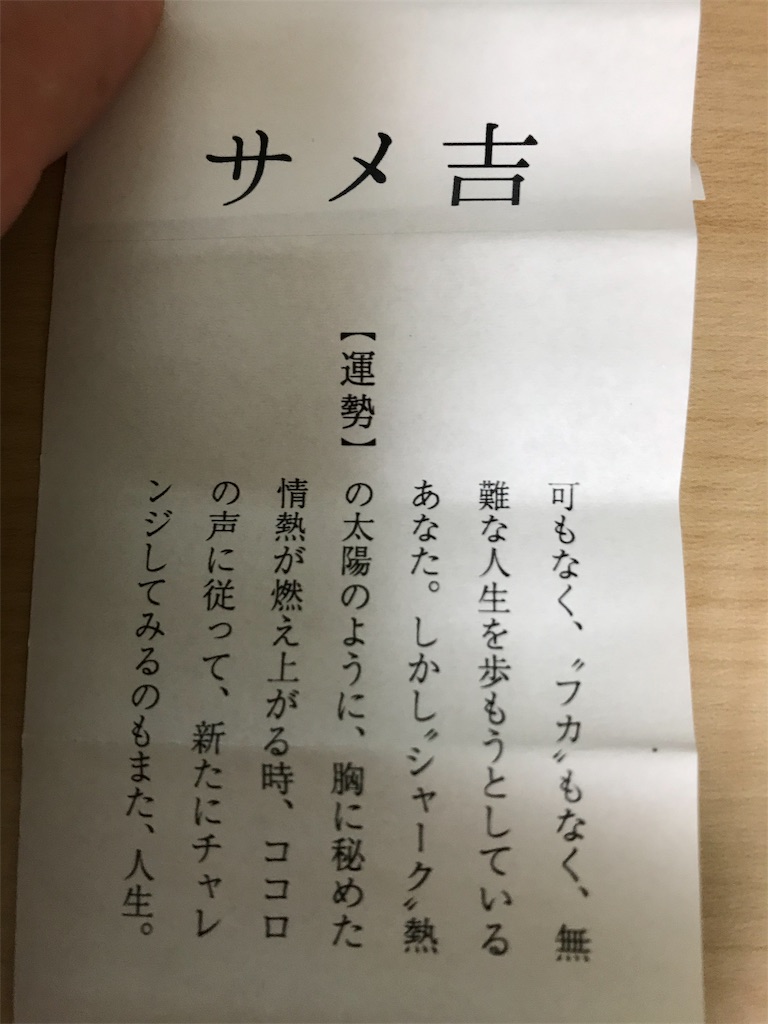 サメ吉
【運勢】
可もなく、〝フカ〟もなく、無
難な人生を歩もうとしている
あなた。しかし〝シャーク〟熱
の太陽のように、胸に秘めた
情熱が燃え上がる時、ココロ
の声に従って、新たにチャレ
ンジしてみるのもまた、人生。